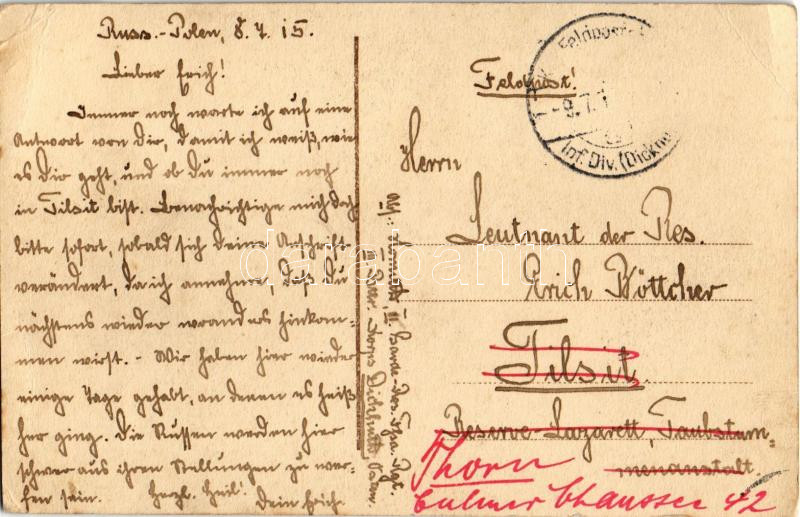 Russ.-Polen, 8.7.15.
Lieber Erich!
Immer noch warte ich auf eine
Antwort von Dir, damit ich weiß, wie
es Dir geht, und ob Du immer noch
in Tilsit bist. Benachrichtige mich doch
bitte sofort, sobald sich deine Anschrift
verändert, da ich annehme, daß Du
nächstens wieder woanders hinkom-
men wirst. - Wir haben hier wieder
einige Tage gehabt, an denen es heiß
her ging. Die Russen werden hier
schwer aus ihren Stellungen zu wer-
fen sein. Herzl. Heil!
Dein Erich.
Abs.: II. Garde-Res.
Korps
Feldpost!
Feldpost
-9.7.1
Inf. Div. (Dickhu
Herrn
Leutnant der Res.
Erich Böttcher
Tilsit.
Reserve Lazarett, Taubstum-
menanstalt.
Thorn
Culmer Chaussee 42
darabanth